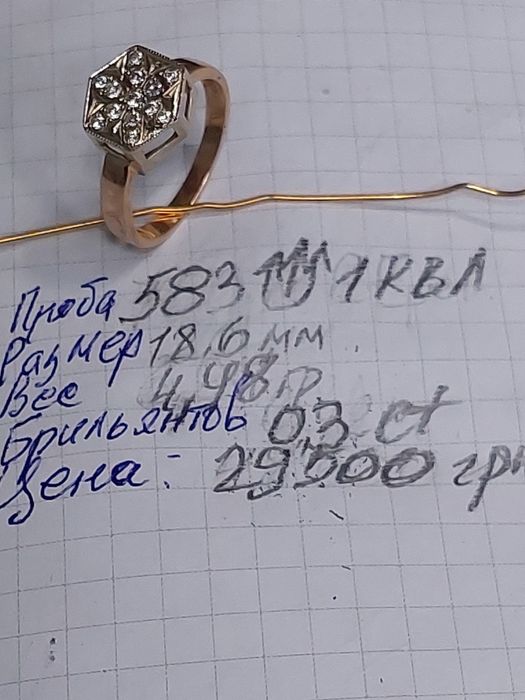 Проба 583 1 КВЛ
Размер 18,6 мм
Вес 4,48 гр
Брильянтов 0,3 ct
Цена: 29500 грн